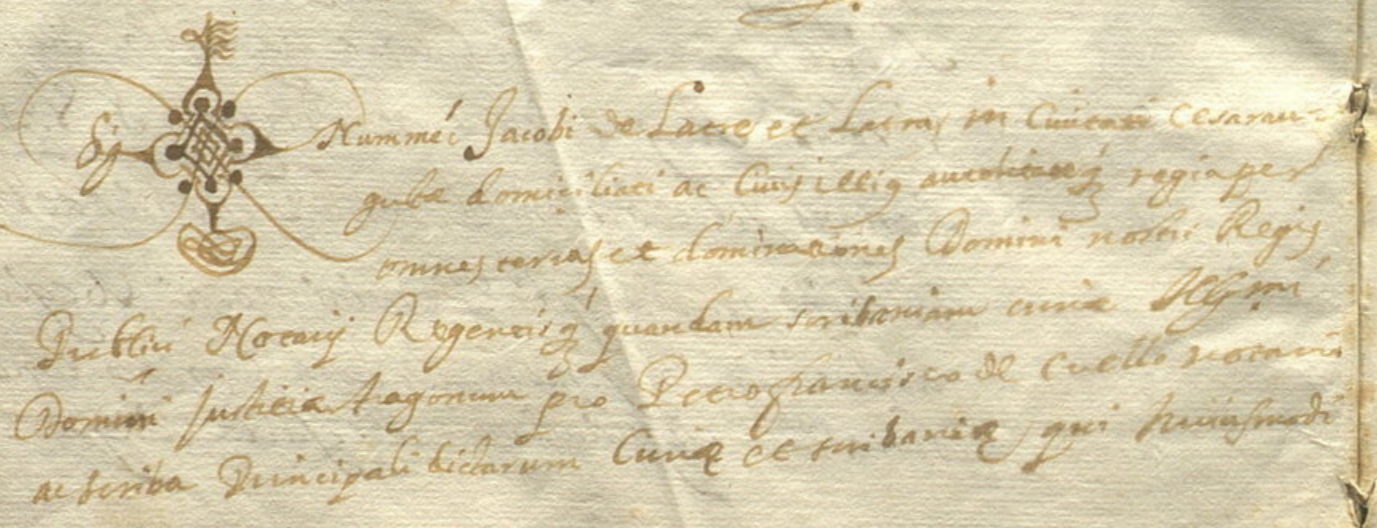 Sig num mei Jacobi de Lacre et Lacra, in Ciuitati Cesarau-
guste domiciliati ac Ciuis illius autoritateq regia per
omnes terras et dominaciones Domini nostri Regis
Publici Notarij Regentisq quandam scribaniam curiæ Illmi
Domini Justitia Aragonum pro Petro francisco de Cuello notario
ac scriba Principali dictarum Curiæ et scribaniæ, qui huiusmodi